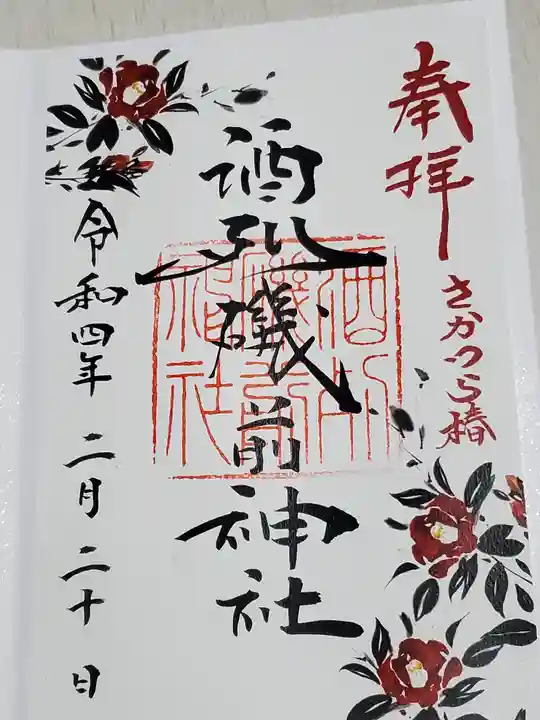 奉拝
さかつら椿
酒列磯前神社
令和四年 二月 二十 日
酒列
磯前
神社